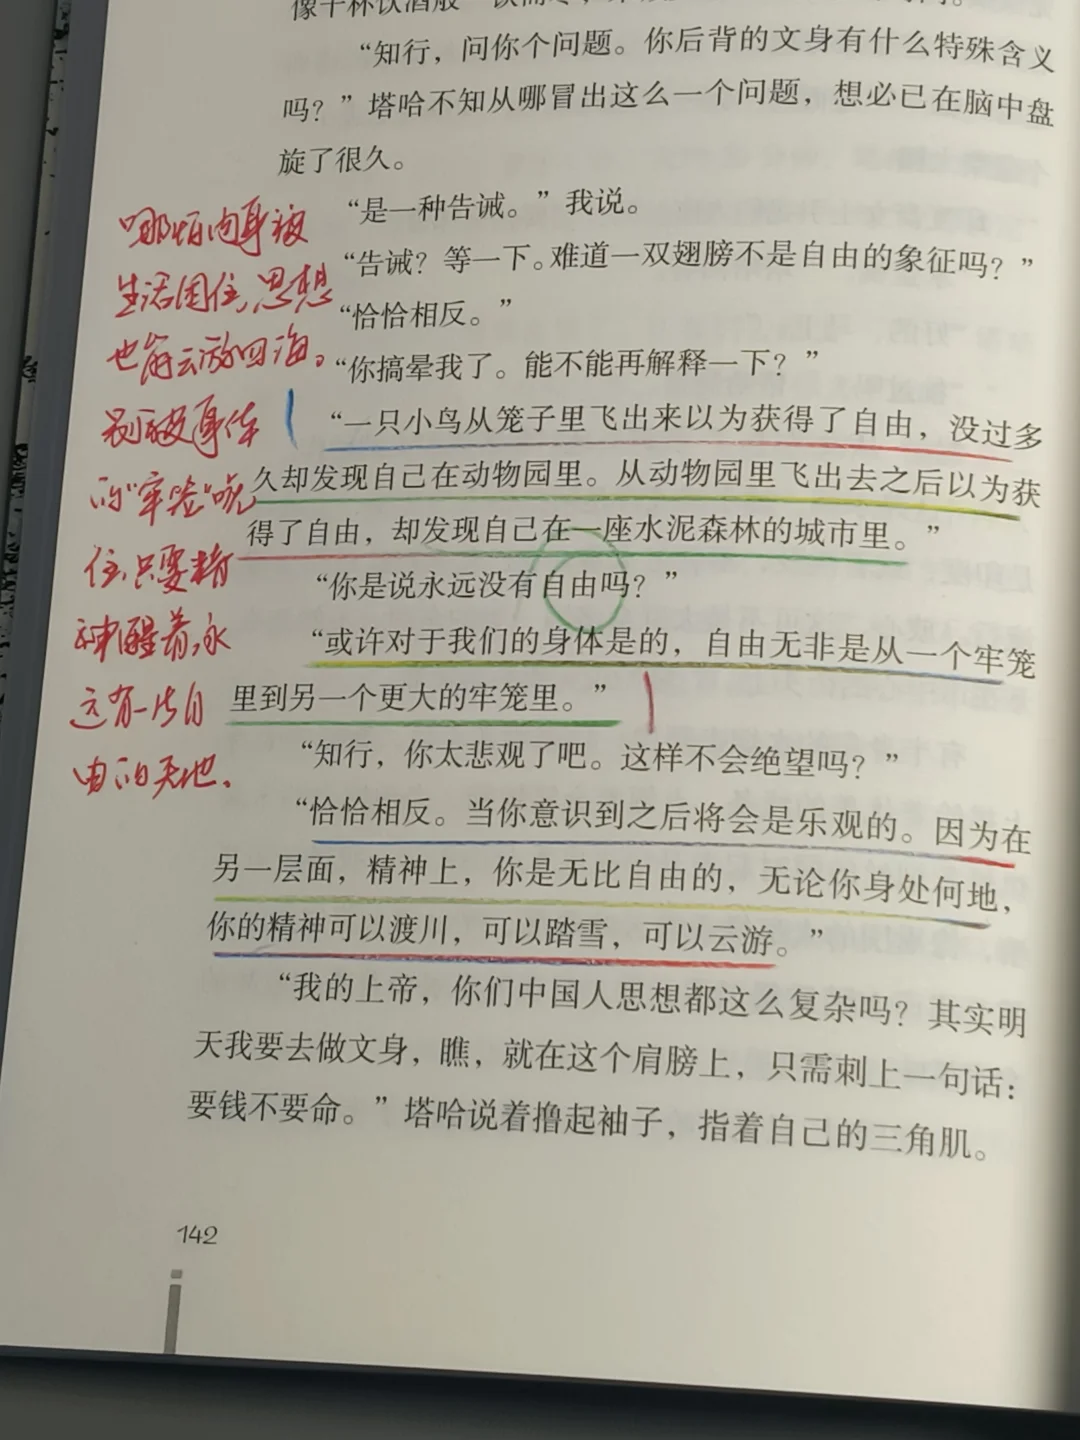 “知行，问你个问题。你后背的文身有什么特殊含义
吗？”塔哈不知从哪冒出这么一个问题，想必已在脑中盘
旋了很久。
“是一种告诫。”我说。
“告诫？等一下。难道一双翅膀不是自由的象征吗？”
“恰恰相反。”
“你搞晕我了。能不能再解释一下？”
“一只小鸟从笼子里飞出来以为获得了自由，没过多
久却发现自己在动物园里。从动物园里飞出去之后以为获
得了自由，却发现自己在一座水泥森林的城市里。”
“你是说永远没有自由吗？”
“或许对于我们的身体是的，自由无非是从一个牢笼
里到另一个更大的牢笼里。”
“知行，你太悲观了吧。这样不会绝望吗？”
“恰恰相反。当你意识到之后将会是乐观的。因为在
另一层面，精神上，你是无比自由的，无论你身处何地，
你的精神可以渡川，可以踏雪，可以云游。”
“我的上帝，你们中国人思想都这么复杂吗？其实明
天我要去做文身，瞧，就在这个肩膀上，只需刺上一句话：
要钱不要命。”塔哈说着撸起袖子，指着自己的三角肌。
哪怕肉身被
生活困住，思想
也能云游四海。
别被身体
的“牢笼”唬
住，只要精
神醒着，永
远有一片自
由的天地。
142